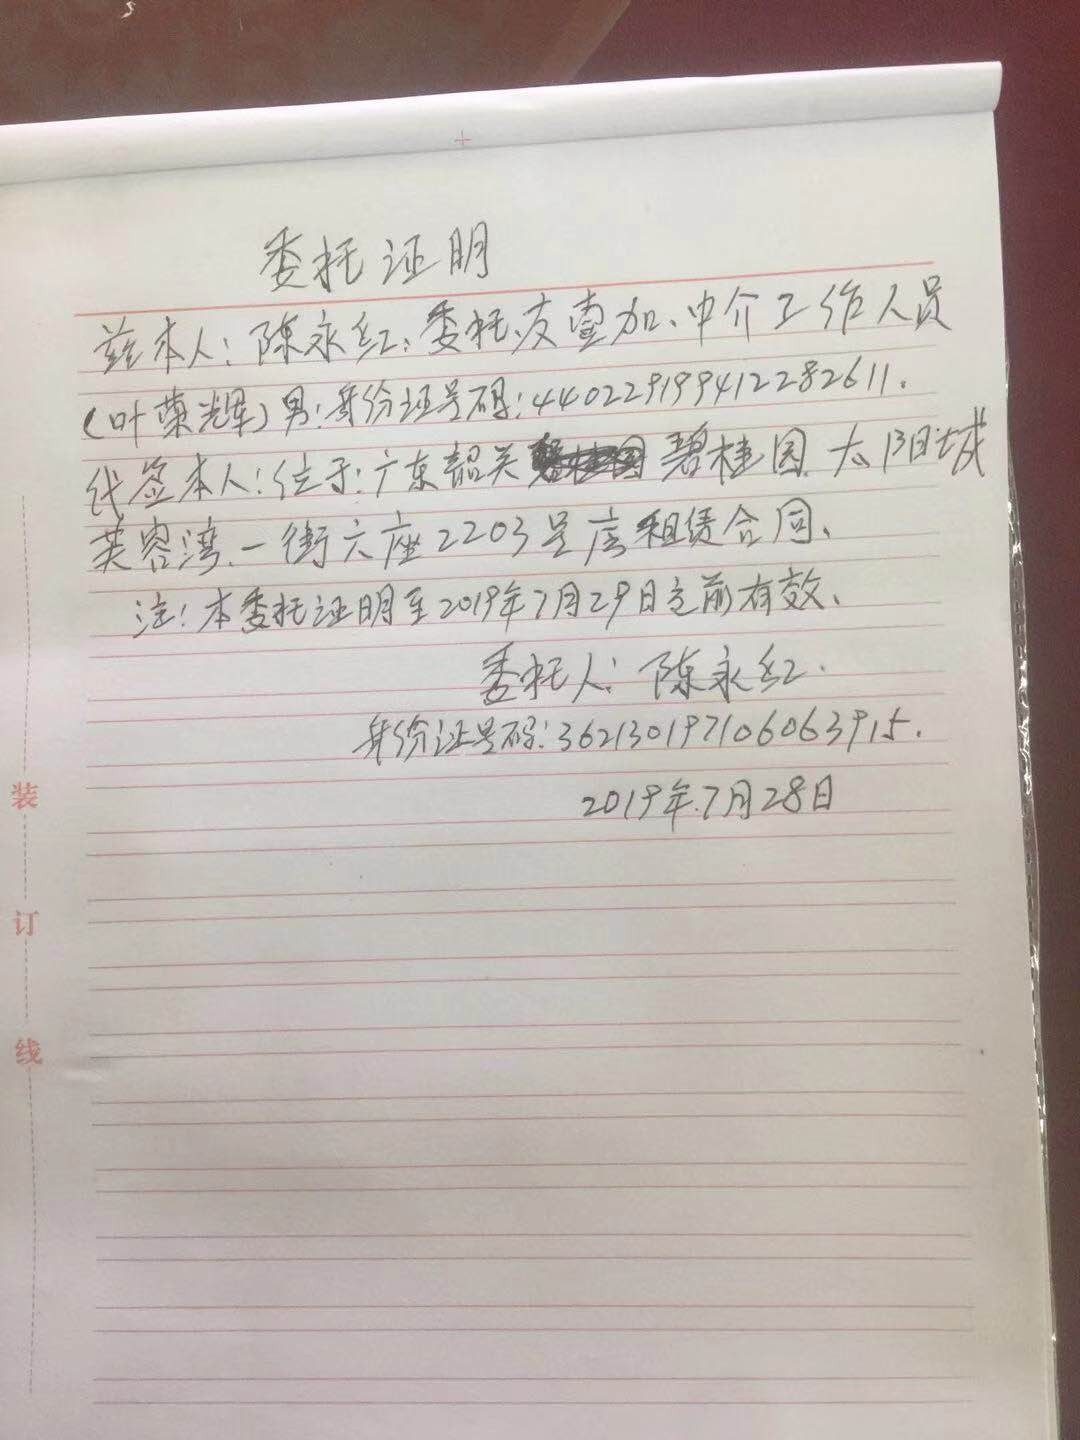 委托证明
兹本人：陈永红：委托友壹加、中介工作人员
（叶荣辉）男：身份证号码：440229199412282611.
代签本人：位于：广东韶关 碧桂园 太阳城
芙蓉湾、一街六座2203号房租赁合同、
注：本委托证明至2019年7月29日之前有效、
委托人：陈永红.
身份证号码：362130197106063915.
2019年.7月28日
装
订
线